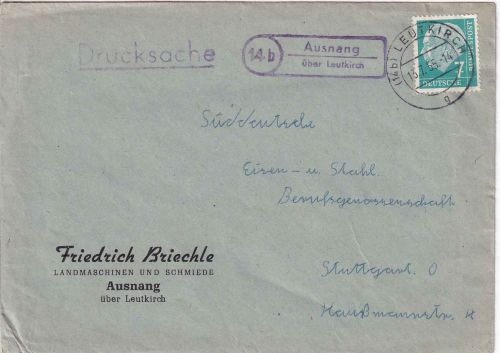 Drucksache
14b
Ausnang
über Leutkirch
(14b) LEUTKIRCH
g
7
DEUTSCHE
BUNDESPOST
Süddeutsche
Eisen- u. Stahl.
Berufsgenossenschaft
Stuttgart. O
Haußmannstr. 4
Friedrich Briechle
LANDMASCHINEN UND SCHMIEDE
Ausnang
über Leutkirch